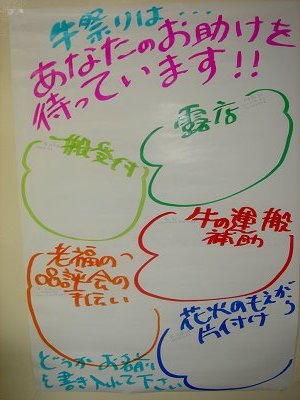 牛祭りは・・・・
あなたのお助けを
待っています!!
露店
一般受付
牛の運搬
補助
老福の
品評会の
手伝い
花火のもえがら
片付け
どうかお名前
を書き入れて下さい